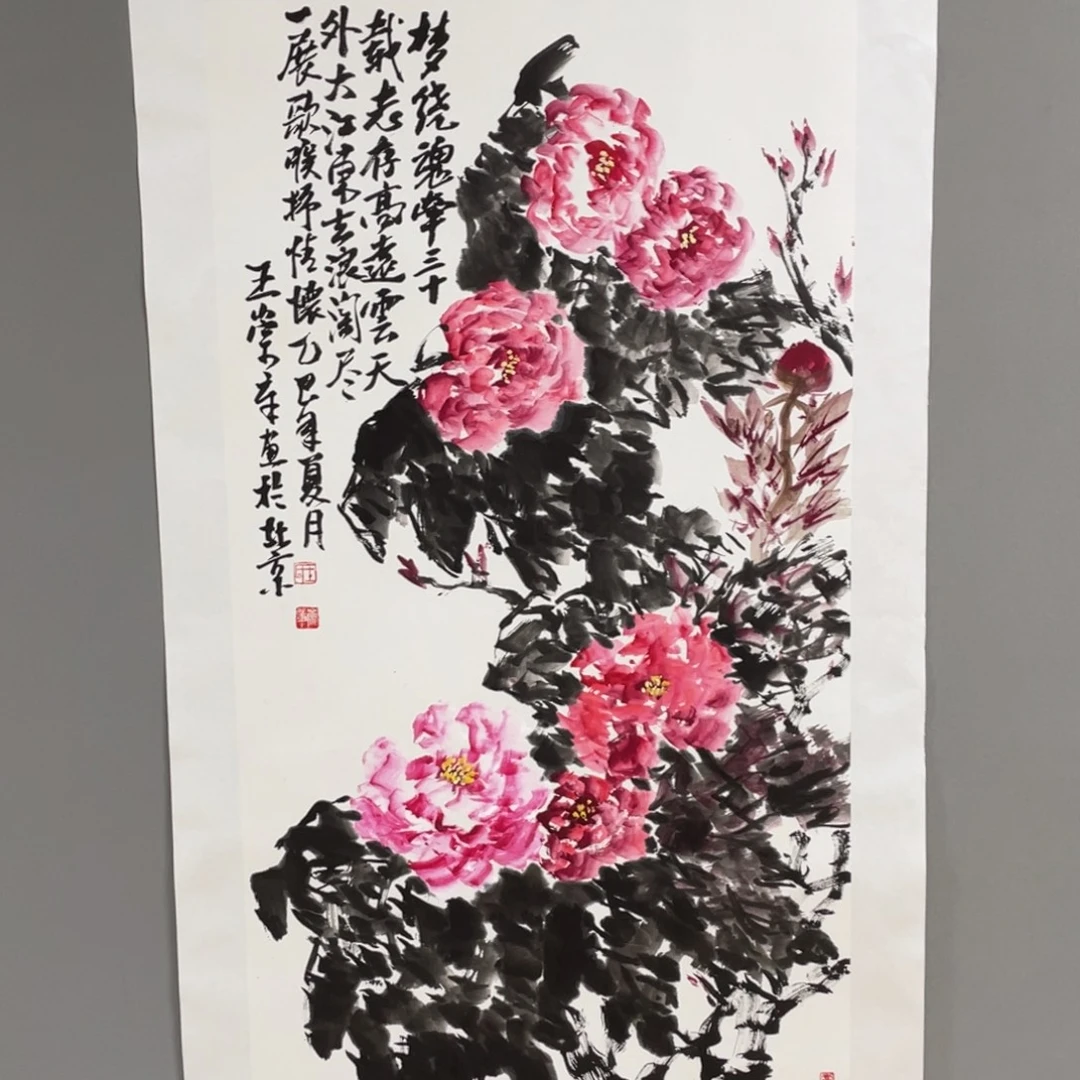 梦绕魂牵三十
載志存高遠雲天
外大江东去浪淘尽
一展歌喉抒情懷乙巳年夏月
王崇画於北京